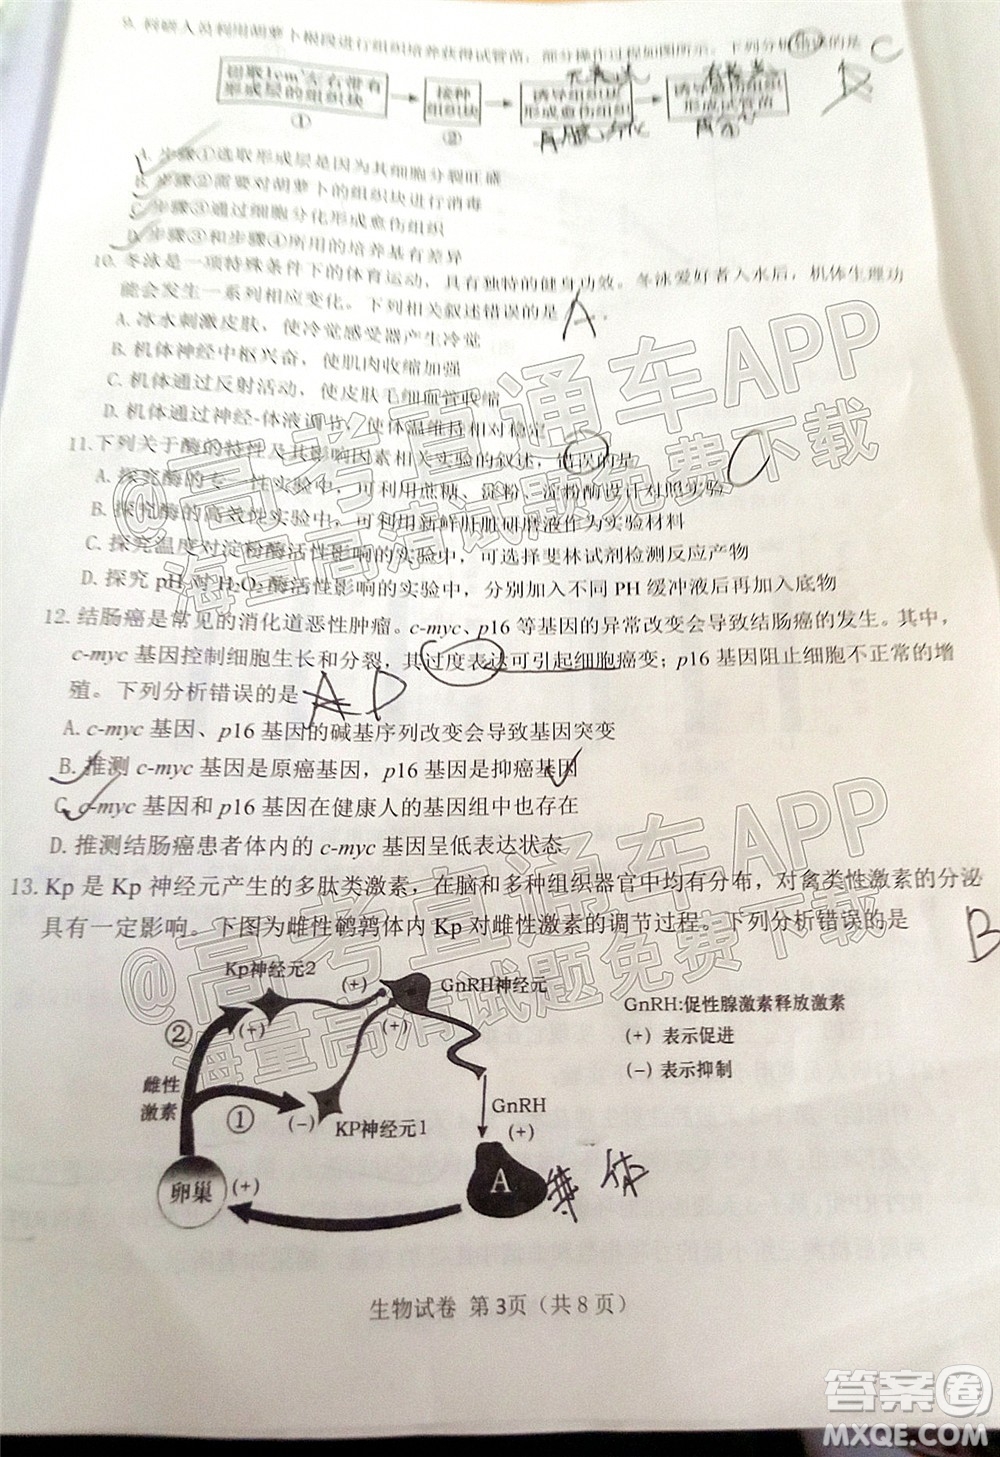 9. 科研人员利用胡萝卜根段进行组织培养获得试管苗，部分操作过程如图所示。下列分析错误的是 C
切取1cm³左右带有形成层的组织块 ①
接种组织块 ②
诱导组织块形成愈伤组织
诱导愈伤组织形成试管苗
A. 步骤①选取形成层是因为其细胞分裂旺盛
B. 步骤②需要对胡萝卜的组织块进行消毒
C. 步骤③通过细胞分化形成愈伤组织
D. 步骤③和步骤④所用的培养基有差异
10. 冬泳是一项特殊条件下的体育运动，具有独特的健身功效。冬泳爱好者入水后，机体生理功
能会发生一系列相应变化。下列相关叙述错误的是 A.
A. 冰水刺激皮肤，使冷觉感受器产生冷觉
B. 机体神经中枢兴奋，使肌肉收缩加强
C. 机体通过反射活动，使皮肤毛细血管收缩
D. 机体通过神经-体液调节，使体温维持相对稳定
11. 下列关于酶的特性及其影响因素相关实验的叙述，错误的是
A. 探究酶的专一性实验中，可利用蔗糖、淀粉、淀粉酶设计对照实验
B. 探究酶的高效性实验中，可利用新鲜肝脏研磨液作为实验材料
C. 探究温度对淀粉酶活性影响的实验中，可选择斐林试剂检测反应产物
D. 探究 pH 对 H₂O₂ 酶活性影响的实验中，分别加入不同 PH 缓冲液后再加入底物
12. 结肠癌是常见的消化道恶性肿瘤。c-myc、p16 等基因的异常改变会导致结肠癌的发生。其中，
c-myc 基因控制细胞生长和分裂，其过度表达可引起细胞癌变；p16 基因阻止细胞不正常的增
殖。下列分析错误的是 A D
A. c-myc 基因、p16 基因的碱基序列改变会导致基因突变
B. 推测 c-myc 基因是原癌基因，p16 基因是抑癌基因
C. c-myc 基因和 p16 基因在健康人的基因组中也存在
D. 推测结肠癌患者体内的 c-myc 基因呈低表达状态
13. Kp 是 Kp 神经元产生的多肽类激素，在脑和多种组织器官中均有分布，对禽类性激素的分泌
具有一定影响。下图为雌性鹌鹑体内 Kp 对雌性激素的调节过程。下列分析错误的是 B
Kp神经元2
(+)
GnRH神经元
GnRH:促性腺激素释放激素
(+) 表示促进
(-) 表示抑制
②
(+)
(+)
雌性激素
①
(-)
KP神经元1
GnRH
(+)
卵巢
(+)
A
垂体
生物试卷 第3页（共8页）
@高考直通车APP
海量高清试题免费下载
@高考直通车APP
海量高清试题免费下载
答案圈
MXQE.COM